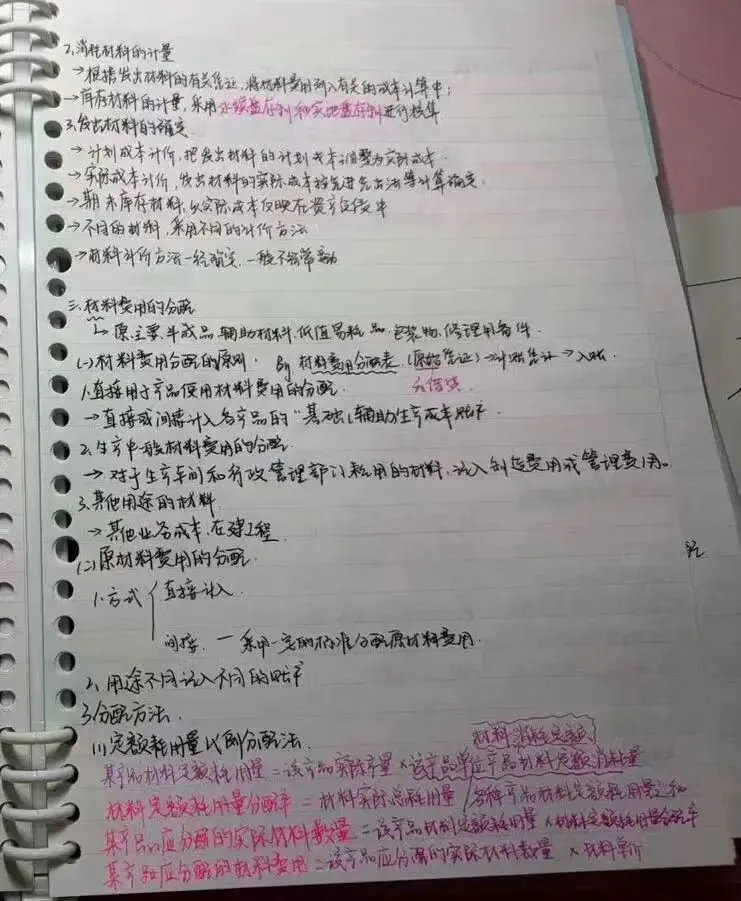 2.消耗材料的计量
→根据发出材料的有关凭证,将材料费用列入有关的成本计算中;
→库存材料的计量,采用永续盘存制和实地盘存制进行核算
3.发出材料的确定
→计划成本计价,把发出材料的计划成本调整为实际成本.
→实际成本计价,发出材料的实际成本按先进先出法等计算确定.
→期末库存材料,以实际成本反映在资产负债中
→不同的材料,采用不同的计价方法
→材料计价方法一经确定,一般不容常变动
三.材料费用的分配
↳原.主要.半成品.辅助材料.低值易耗品.包装物.修理用备件.
(一)材料费用分配的原则: 材料费用分配表.(原始凭证)→记账凭证→入账.
1.直接用于产品使用材料费用的分配.
→直接或间接计入各产品的"基础、辅助生产成本账户.
2.生产中一般材料费用的分配
→对于生产车间和行政管理部门耗用的材料,记入制造费用或管理费用。
3.其他用途的材料
→其他业务成本.在建工程.
(二)原材料费用的分配.
1.方式{直接计入.
间接.一采用一定的标准分配原材料费用.
2.用途不同记入不同的账户
3.分配方法.
(1)定额耗用量比例分配法. 材料消耗定额
某产品材料定额耗用量=该产品实际产量×该产品单位产品材料定额消耗量
材料定额耗用量分配率=材料实际总耗用量/各种产品材料定额耗用量之和
某产品应分配的实际材料数量=该产品材料定额耗用量×材料定额耗用量分配率
某产品应分配的材料费用=该产品应分配的实际材料数量×材料单价